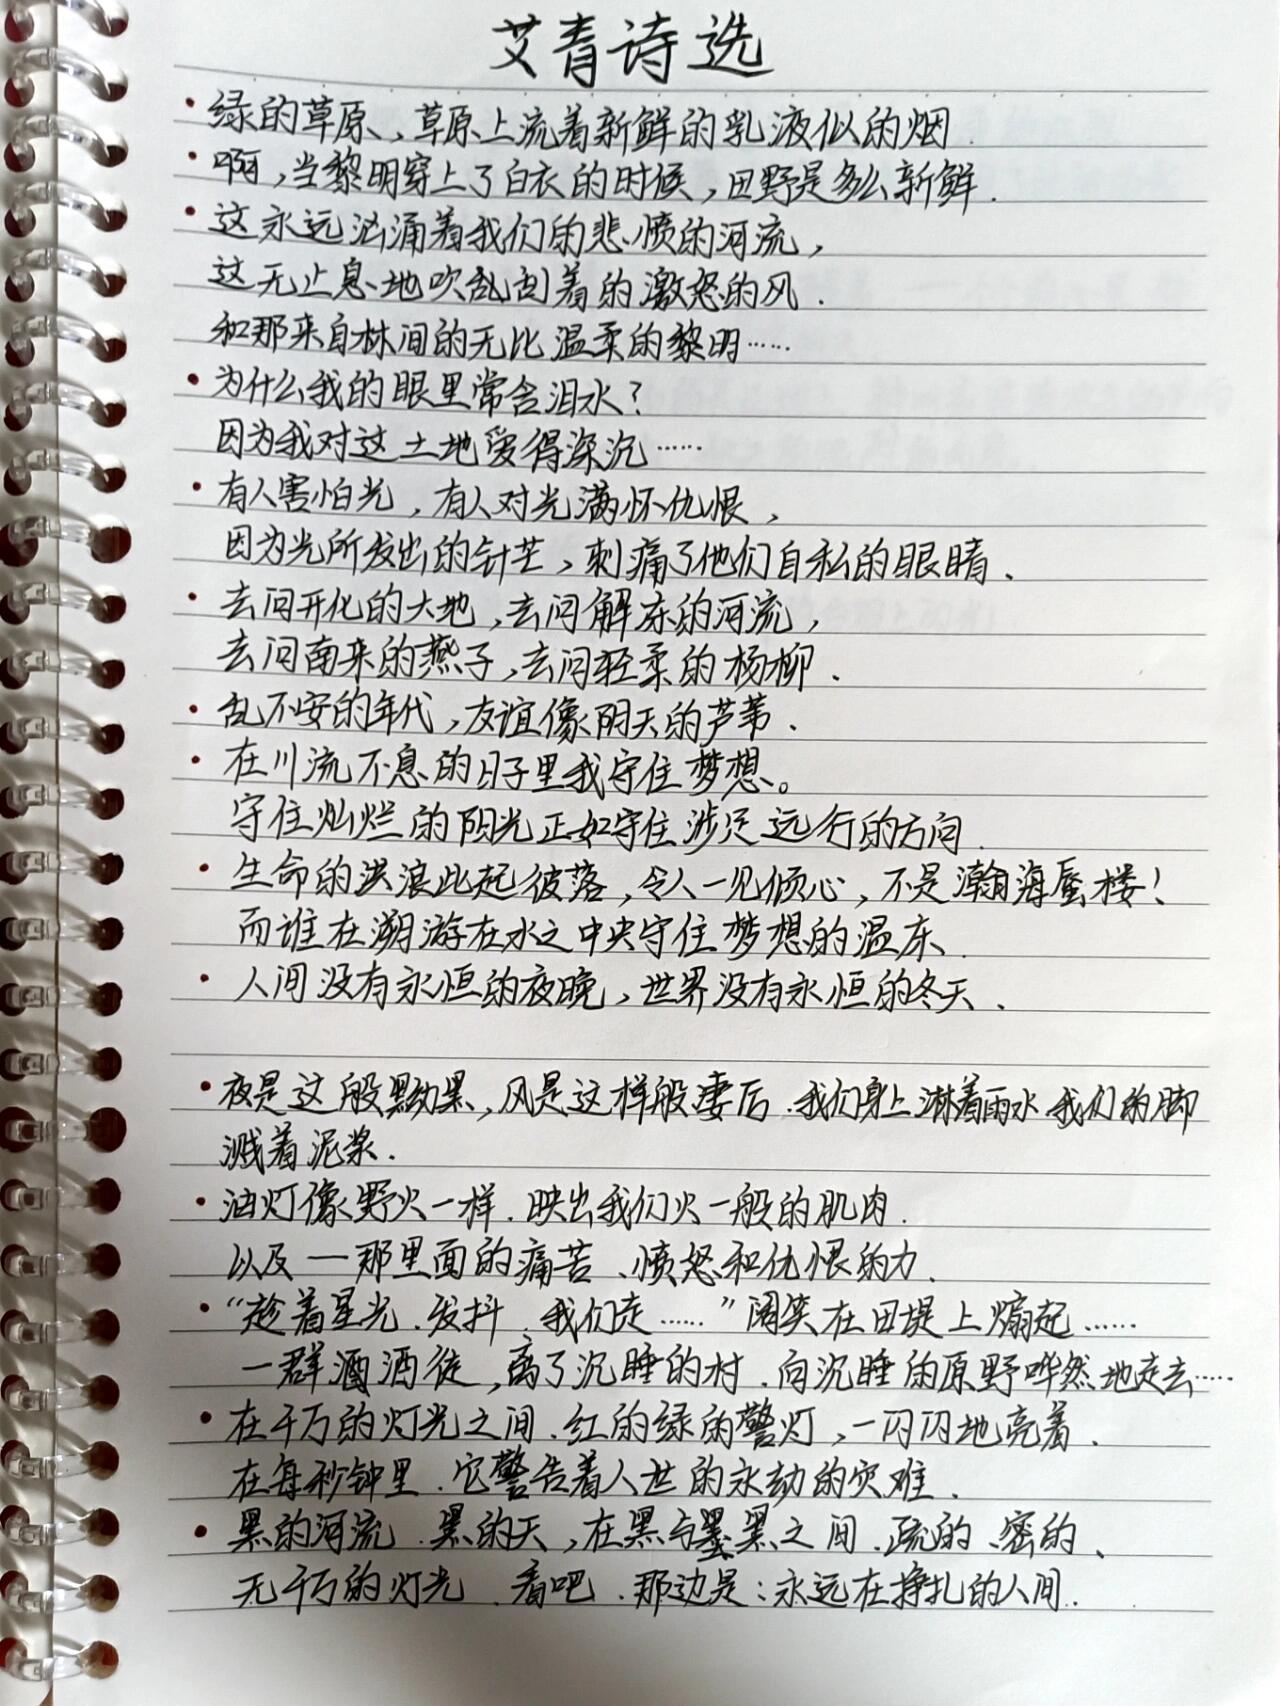 艾青诗选
·绿的草原,草原上流着新鲜的乳液似的烟.
·啊,当黎明穿上了白衣的时候,田野是多么新鲜.
·这永远汹涌着我们的悲愤的河流,
这无止息地吹乱刮着的激怒的风.
和那来自林间的无比温柔的黎明……
·为什么我的眼里常含泪水?
因为我对这土地爱得深沉……
·有人害怕光,有人对光满怀仇恨,
因为光所发出的针芒,刺痛了他们自私的眼睛、
·去问开化的大地,去问解冻的河流,
去问南来的燕子,去问轻柔的杨柳.
·乱不安的年代,友谊像阴天的芦苇.
·在川流不息的日子里我守住梦想。
守住灿烂的阳光正如守住涉足远行的方向.
·生命的洪浪此起彼落,令人一见倾心,不是瀚海蜃楼!
而谁在溯游在水之中央守住梦想的温床.
·人间没有永恒的夜晚,世界没有永恒的冬天、
·夜是这般黝黑,风是这样般凄后.我们身上淋着雨水.我们的脚
溅着泥浆.
·油灯像野火一样.映出我们火一般的肌肉.
以及一那里面的痛苦、愤怒和仇恨的力.
·“趁着星光.发抖.我们走……”阔笑在田堤上煽起……
一群酒徒,离了沉睡的村.向沉睡的原野哗然地走去……
·在千万的灯光之间.红的绿的警灯,一闪闪地亮着.
在每秒钟里.它警告着人世的永劫的灾难.
·黑的河流.黑的天,在黑与黑之间.疏的、密的、
无千万的灯光.看吧.那边是:永远在挣扎的人间..